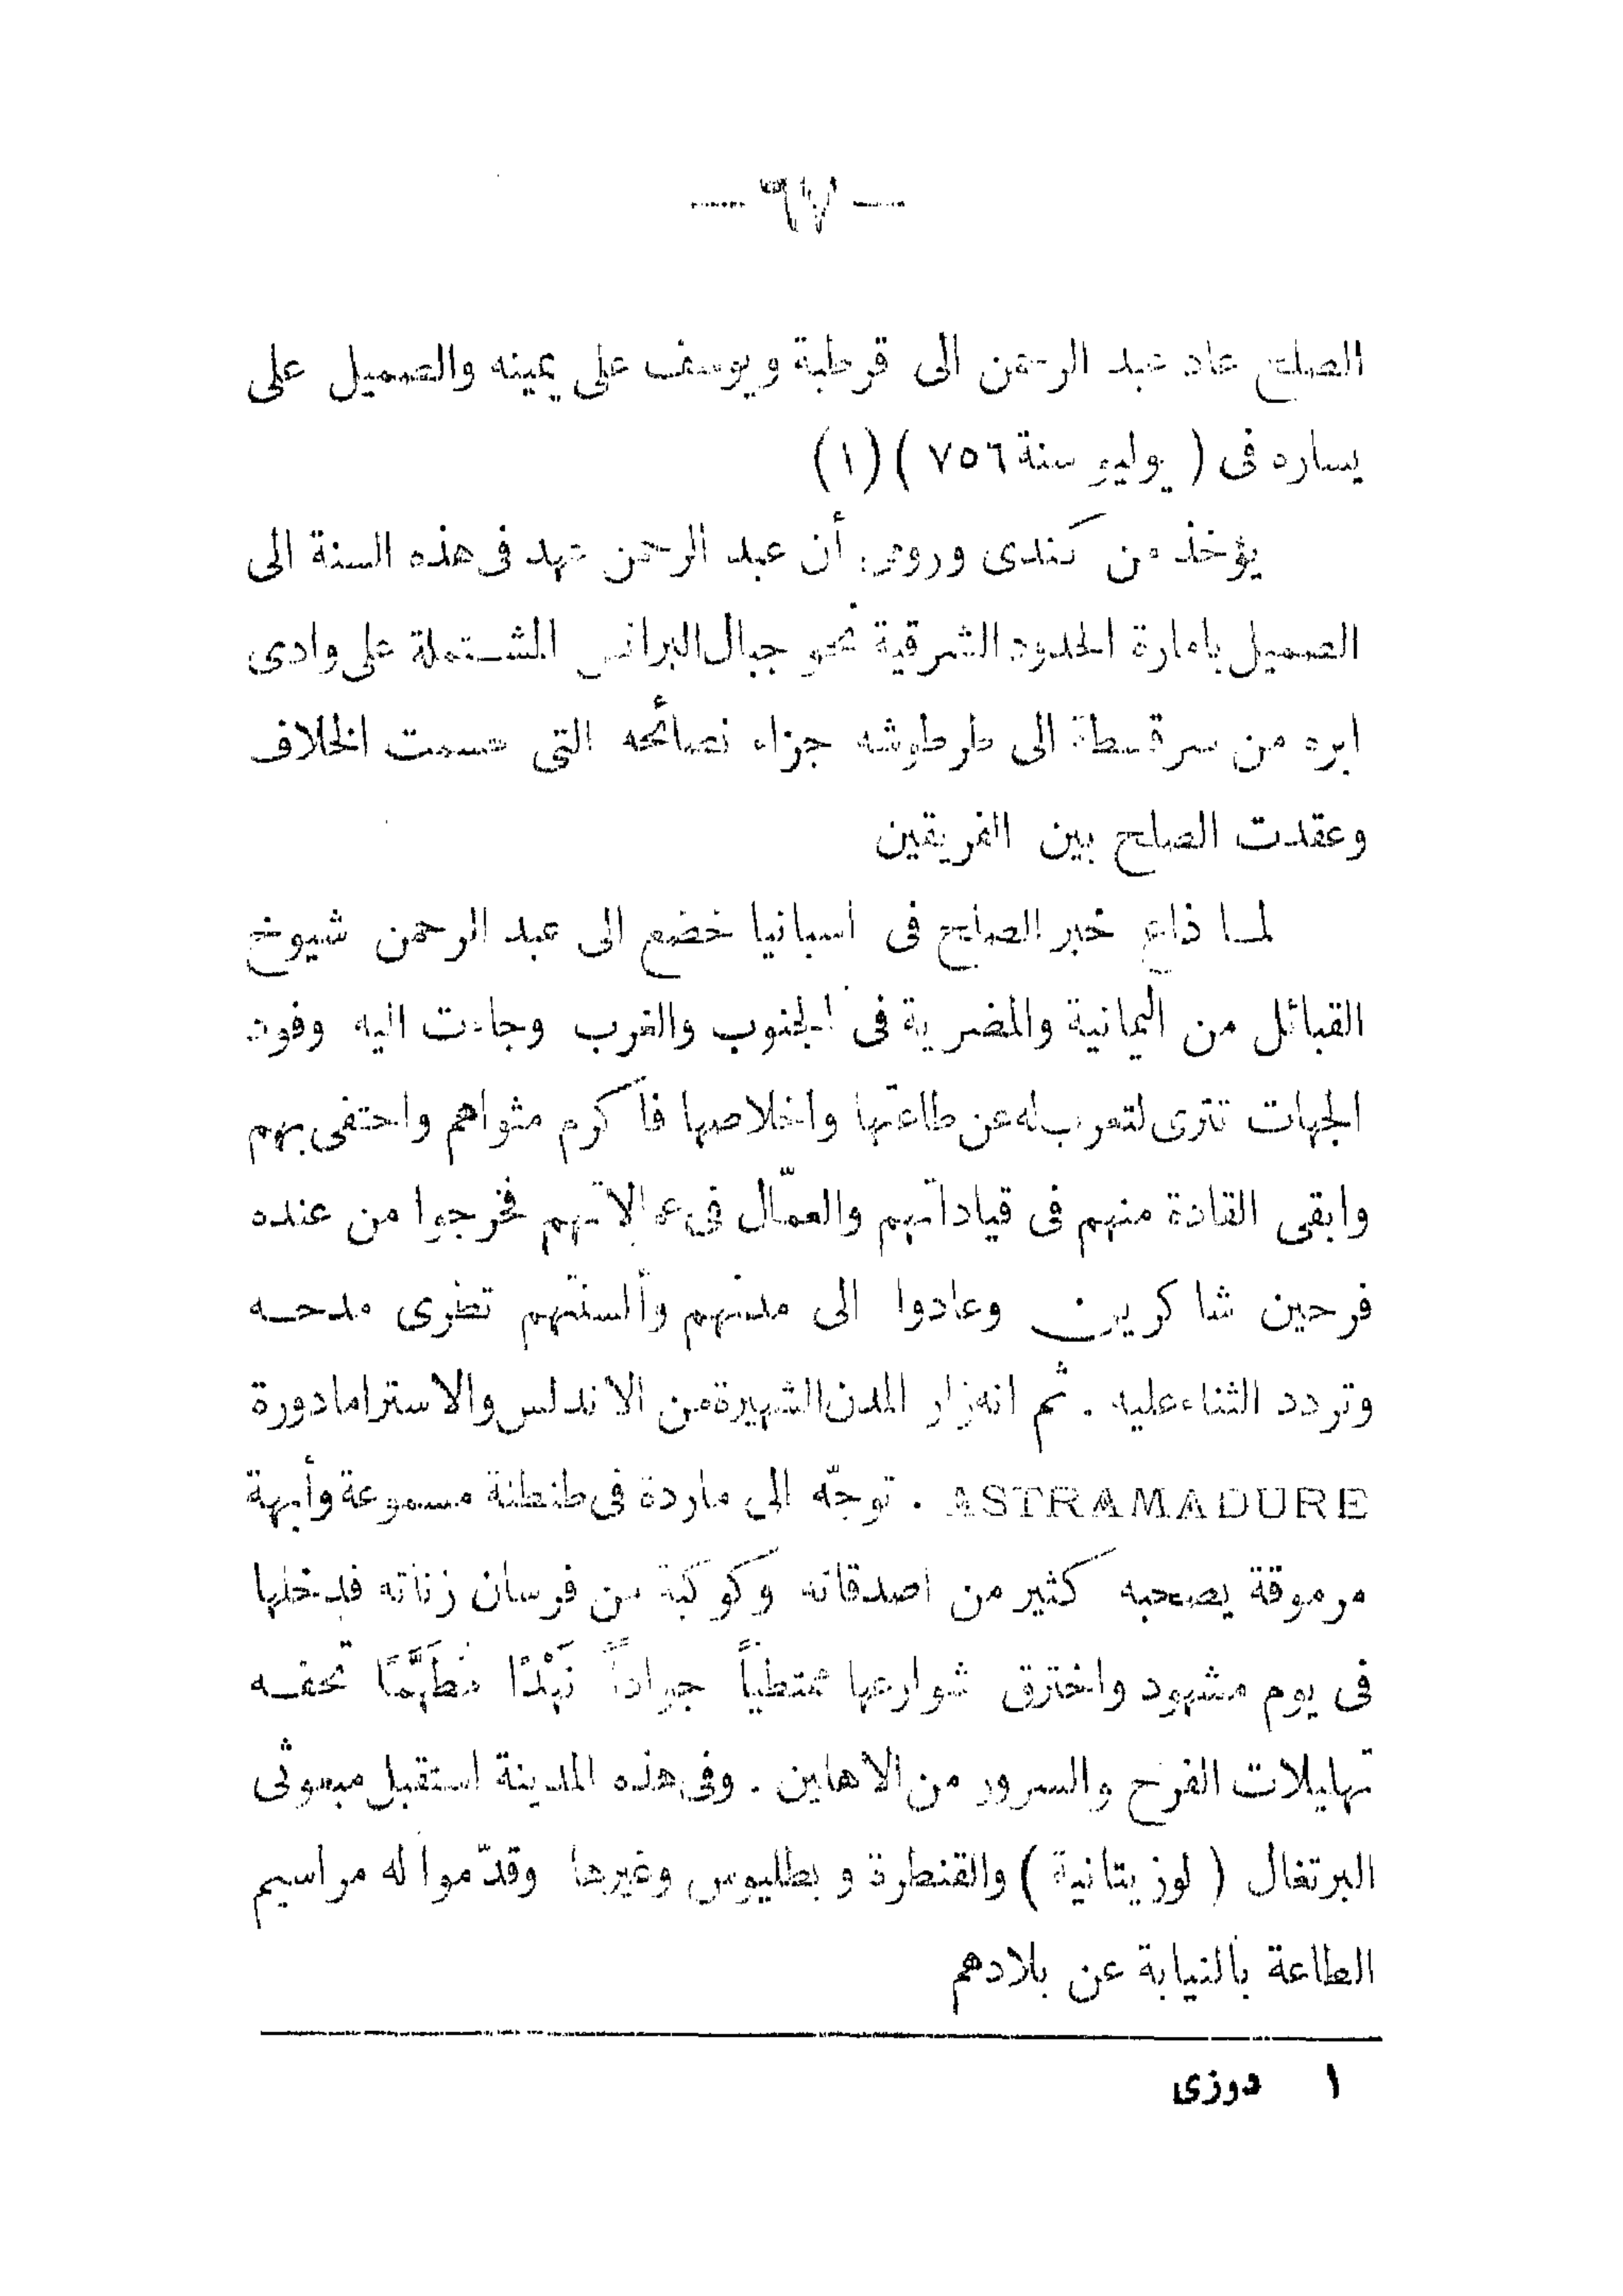 — ٦٧ —
الصلح عاد عبد الرحمن الى قرطبة ويوسف على يمينه والصميل على
يساره فى ( يوليو سنة ٧٥٦ ) (١)
يؤخذ من كندى وروى أن عبد الرحمن عهد فى هذه السنة الى
الصميل بامارة الحدود الشرقية نحو جبال البرانس المشتملة على وادى
ابره من سرقسطة الى طرطوشه جزاء نصائحه التى حسمت الخلاف
وعقدت الصلح بين الفريقين
لما ذاع خبر الصلح فى اسبانيا خضع الى عبد الرحمن شيوخ
القبائل من اليمانية والمضرية فى الجنوب والغرب وجاءت اليه وفود
الجهات تترى لتعرب له عن طاعتها واخلاصها فاكرم مثواهم واحتفى بهم
وابقى القادة منهم فى قياداتهم والعمّال فى عمالاتهم فخرجوا من عنده
فرحين شاكرين وعادوا الى مدنهم وألسنتهم تطرى مدحه
وتردد الثناء عليه . ثم انه زار المدن الشهيرة من الاندلس والاسترامادورة
ASTRAMADURE . توجّه الى ماردة فى طنطنة مسموعة وأبهة
مرموقة يصحبه كثير من اصدقائه وكوكبة من فرسان زناته فدخلها
فى يوم مشهود واخترق شوارعها ممتطياً جواداً نَهْدًا مُطَهَّمًا تحفه
تهليلات الفرح والسرور من الاهلين . وفى هذه المدينة استقبل مبعوثى
البرتغال ( لوزيتانية ) والقنطرة وبطليوس وغيرها وقدّموا له مراسيم
الطاعة بالنيابة عن بلادهم
١ دوزى